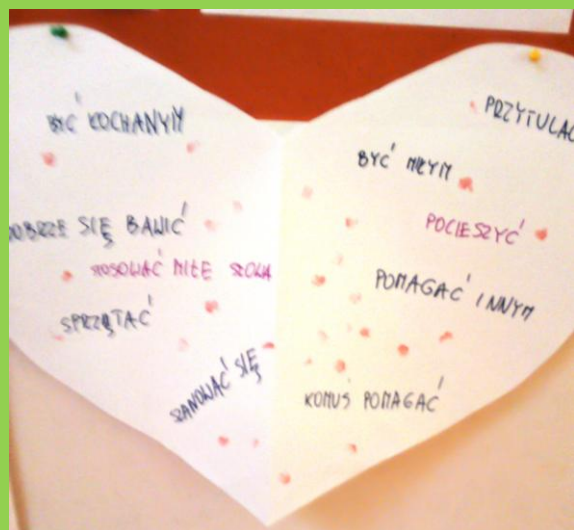 BYĆ KOCHANYM
DOBRZE SIĘ BAWIĆ
STOSOWAĆ MIŁE SŁOWA
SPRZĄTAĆ
SZANOWAĆ SIĘ
PRZYTULAĆ
BYĆ MIŁYM
POCIESZYĆ
POMAGAĆ INNYM
KOMUŚ POMAGAĆ